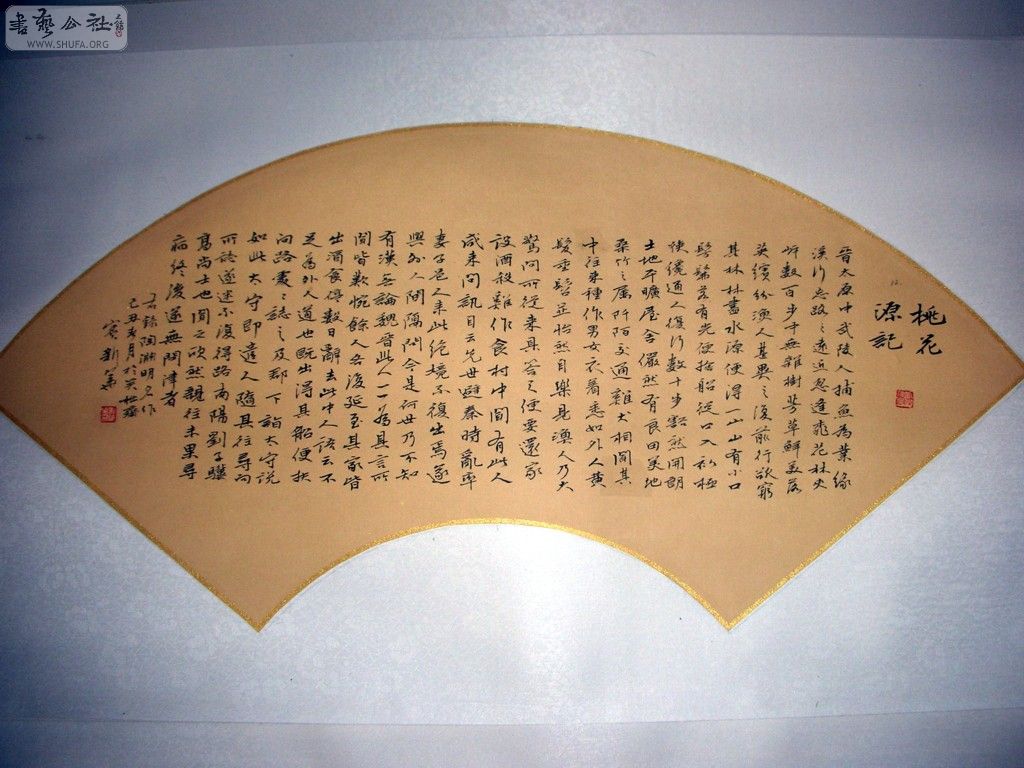 書藝公社
WWW.SHUFA.ORG
桃花
源記
晉太原中武陵人捕魚為業緣
溪行忘路之遠近忽逢桃花林夾
岸數百步中無雜樹芳草鮮美落
英繽紛漁人甚異之復前行欲窮
其林林盡水源便得一山山有小口
髣髴若有光便捨船從口入初極
狹纔通人復行數十步豁然開朗
土地平曠屋舍儼然有良田美地
桑竹之屬阡陌交通雞犬相聞其
中往來種作男女衣著悉如外人黃
髮垂髫並怡然自樂見漁人乃大
驚問所從來具答之便要還家
設酒殺雞作食村中聞有此人
咸來問訊自云先世避秦時亂率
妻子邑人來此絕境不復出焉遂
與外人間隔問今是何世乃不知
有漢無論魏晉此人一一為具言所
聞皆歎惋餘人各復延至其家皆
出酒食停數日辭去此中人語云不
足為外人道也既出得其船便扶
向路處々誌之及郡下詣太守說
如此太守即遣人隨其往尋向
所誌遂迷不復得路南陽劉子驥
高尚士也聞之欣然親往未果尋
病終後遂無問津者
錄陶淵明名作
己丑月於
新